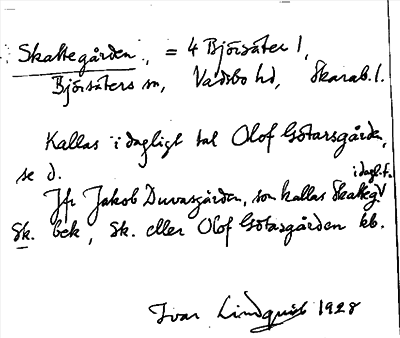 Skattegården, = 4 Björsäter 1,
Björsäters sn, Vadsbo hd, Skarab. l.
Kallas i dagligt tal Olof Götarsgården,
se d.
i dagl. t.
Jfr Jakob Duvasgården, som kallas Skatteg.
Sk. bek, Sk. eller Olof Götasgården kb.
Ivar Lindquist 1928